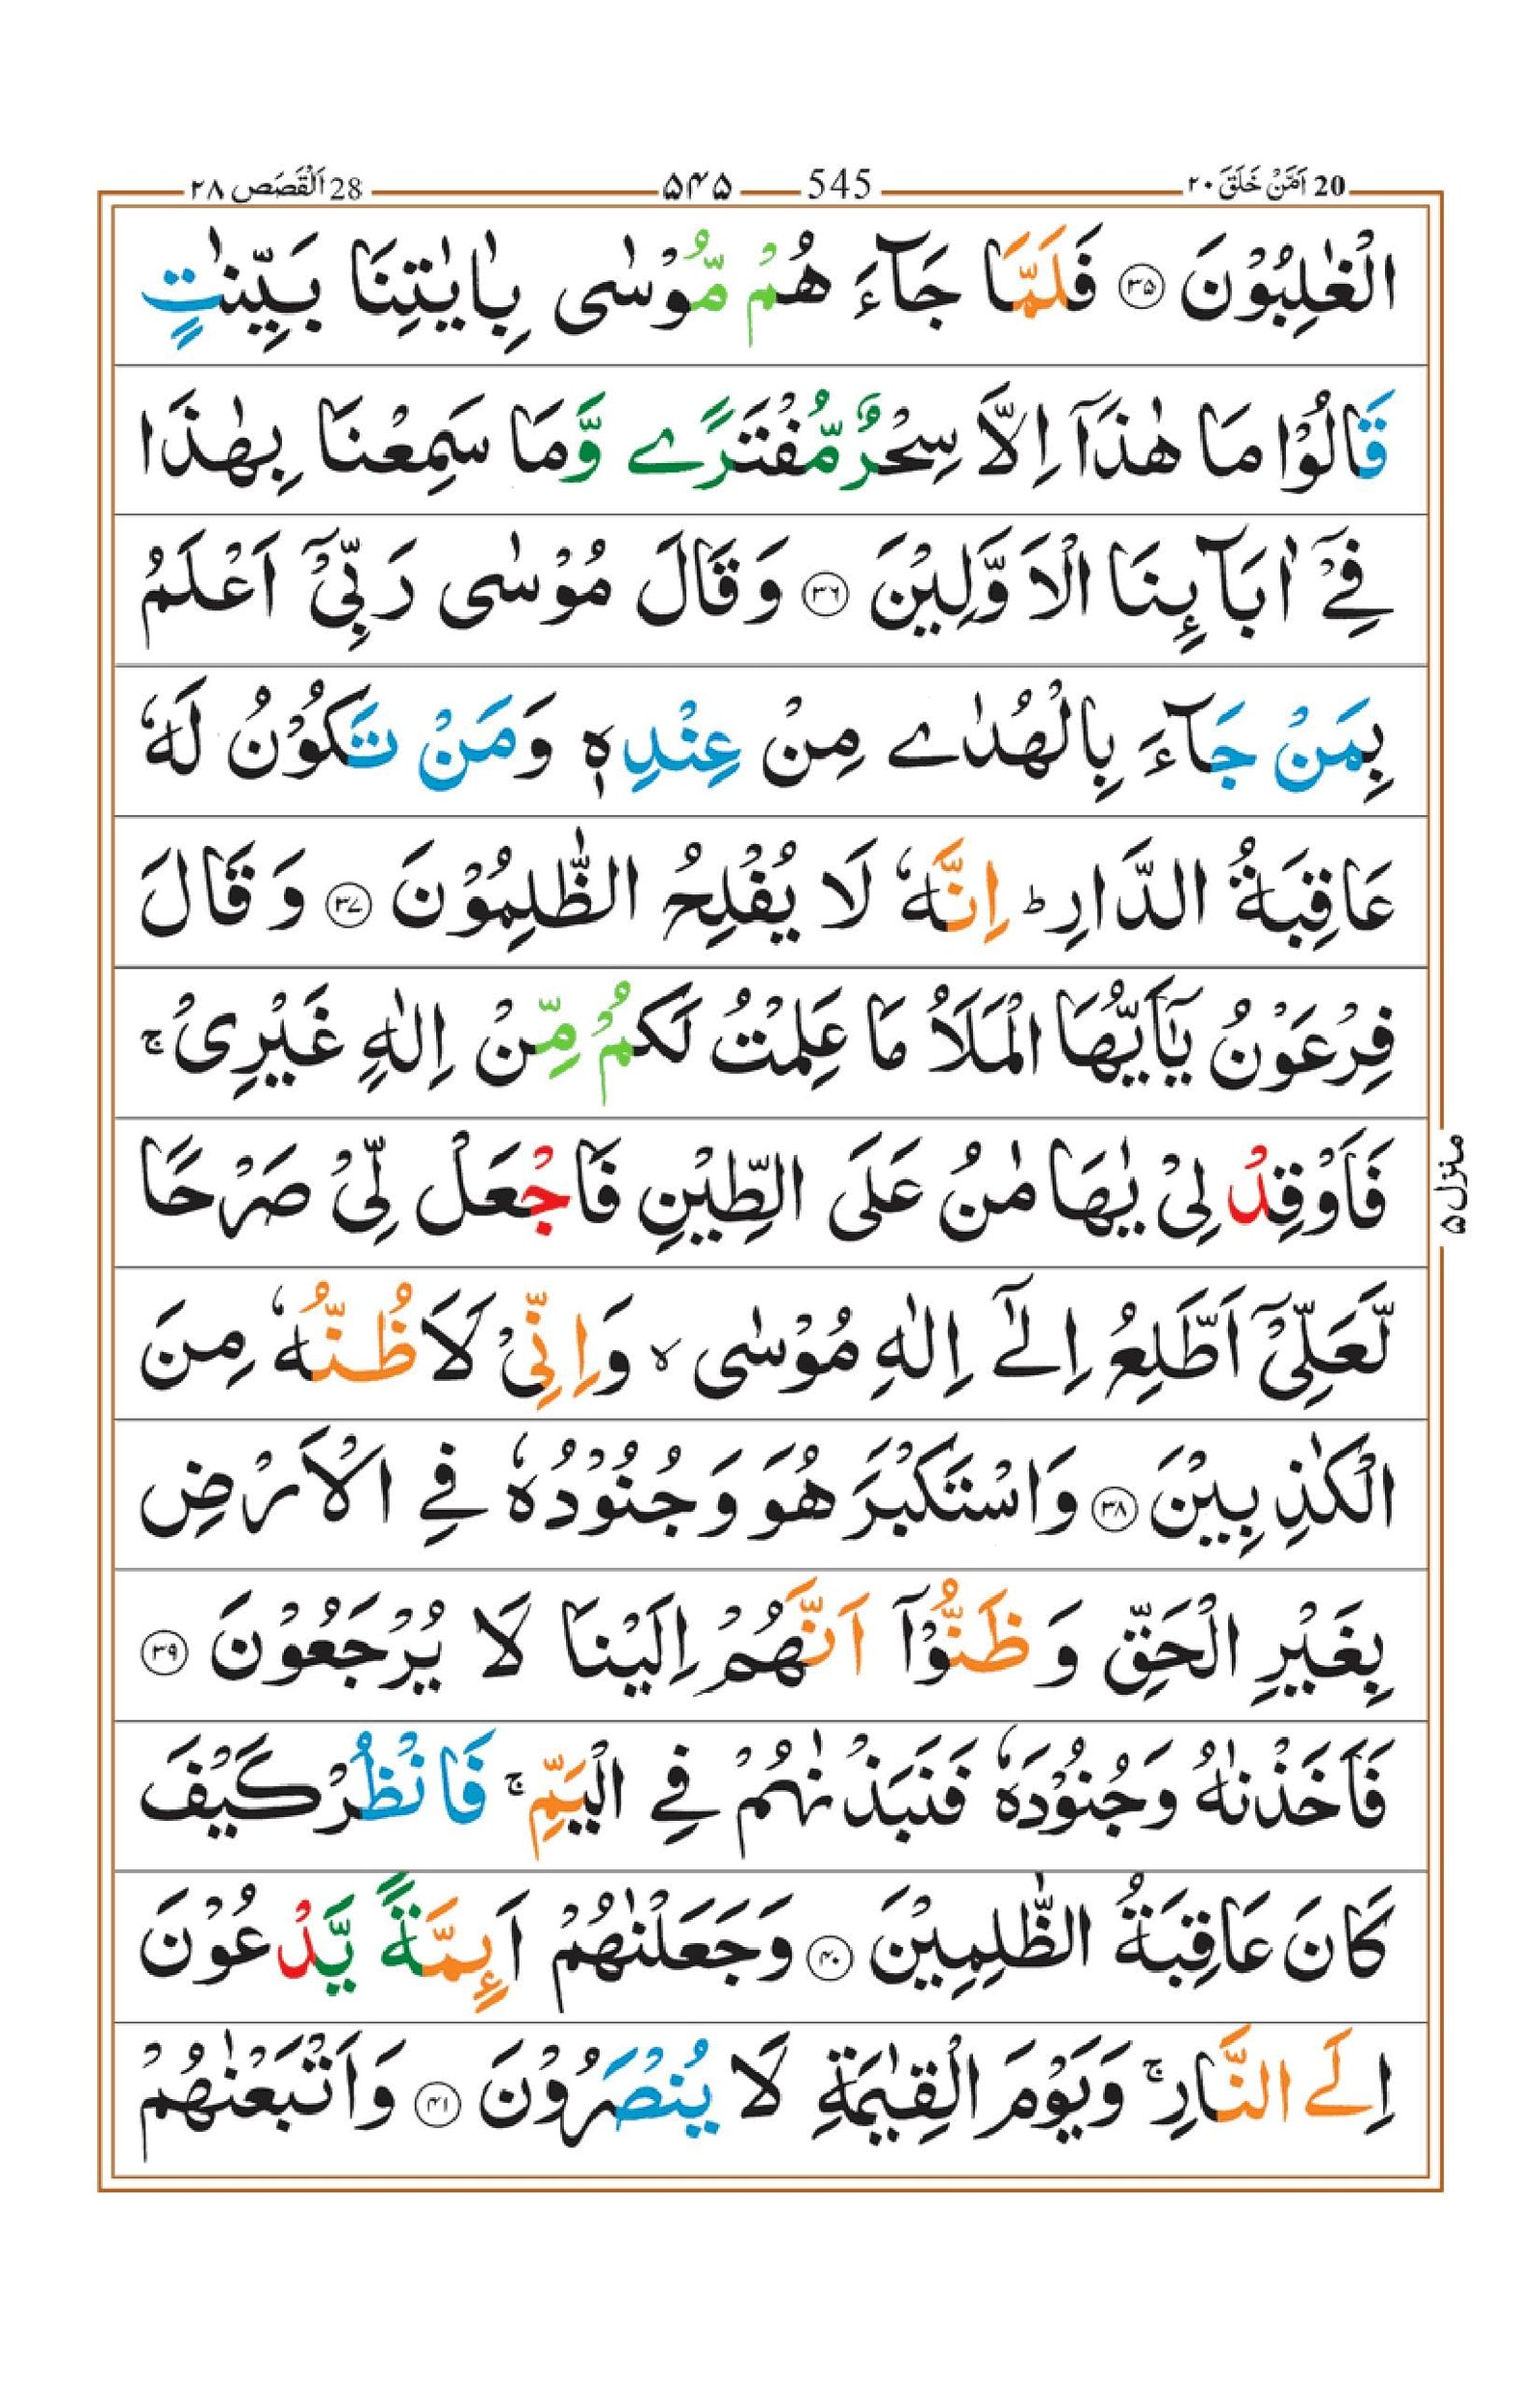 20 اَمَّنْ خَلَقَ ٢٠ 545 ۵۴۵ 28 اَلْقَصَص ٢٨
الْغٰلِبُوْنَ ۝۳۵ فَلَمَّا جَآءَ هُمْ مُّوْسٰى بِاٰيٰتِنَا بَيِّنٰتٍ
قَالُوْا مَا هٰذَآ اِلَّا سِحْرٌ مُّفْتَرًے وَّمَا سَمِعْنَا بِهٰذَا
فِےْٓ اٰبَآئِنَا الْاَوَّلِيْنَ ۝۳۶ وَقَالَ مُوْسٰى رَبِّىْٓ اَعْلَمُ
بِمَنْ جَآءَ بِالْهُدٰے مِنْ عِنْدِهٖ وَمَنْ تَكُوْنُ لَهٗ
عَاقِبَةُ الدَّارِ ؕ اِنَّهٗ لَا يُفْلِحُ الظّٰلِمُوْنَ ۝۳۷ وَقَالَ
فِرْعَوْنُ يٰٓاَيُّهَا الْمَلَاُ مَا عَلِمْتُ لَكُمْ مِّنْ اِلٰهٍ غَيْرِىْ ۚ
فَاَوْقِدْ لِىْ يٰهَامٰنُ عَلَى الطِّيْنِ فَاجْعَلْ لِّىْ صَرْحًا
لَّعَلِّىْٓ اَطَّلِعُ اِلٰٓے اِلٰهِ مُوْسٰى ۙ وَاِنِّىْ لَاَظُنُّهٗ مِنَ
الْكٰذِبِيْنَ ۝۳۸ وَاسْتَكْبَرَ هُوَ وَجُنُوْدُهٗ فِے الْاَرْضِ
بِغَيْرِ الْحَقِّ وَظَنُّوْٓا اَنَّهُمْ اِلَيْنَا لَا يُرْجَعُوْنَ ۝۳۹
فَاَخَذْنٰهُ وَجُنُوْدَهٗ فَنَبَذْنٰهُمْ فِے الْيَمِّ ۚ فَانْظُرْ كَيْفَ
كَانَ عَاقِبَةُ الظّٰلِمِيْنَ ۝۴۰ وَجَعَلْنٰهُمْ اَئِمَّةً يَّدْعُوْنَ
اِلَے النَّارِ ۚ وَيَوْمَ الْقِيٰمَةِ لَا يُنْصَرُوْنَ ۝۴۱ وَاَتْبَعْنٰهُمْ
منزل ۵